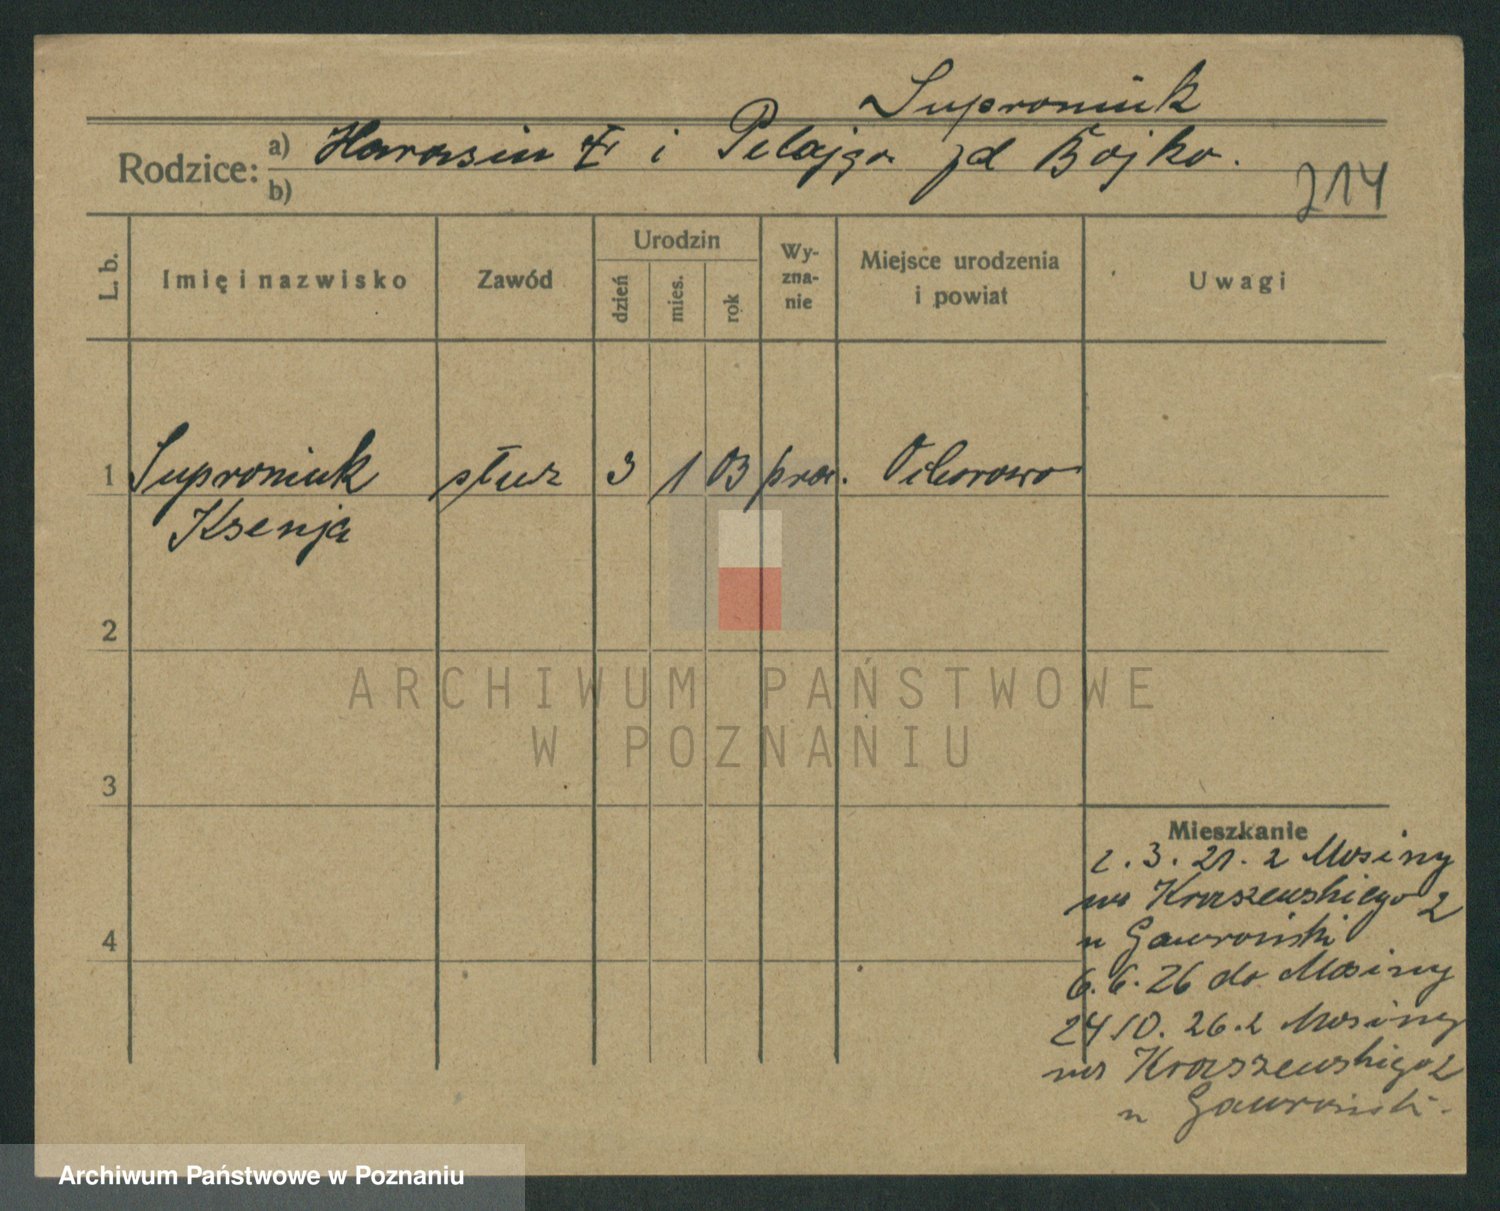 Suproniuk
Rodzice: a) Harasin i Pelagja zd Bojko.
b)
214
L. b.
Imię i nazwisko
Zawód
Urodzin
dzień
mies.
rok
Wy-
zna-
nie
Miejsce urodzenia
i powiat
Uwagi
1 Suproniuk służ 3 1 03 praw. Ochorowo
Ksenja
2
ARCHIWUM PAŃSTWOWE
W POZNANIU
3
Mieszkanie
2. 3. 21. z Mosiny
na Kraszewskiego 2
u Gawroński
4
6. 6. 26 do Mosiny
24 10. 26. z Mosiny
na Kraszewskiego 2
u Gawroński.
Archiwum Państwowe w Poznaniu